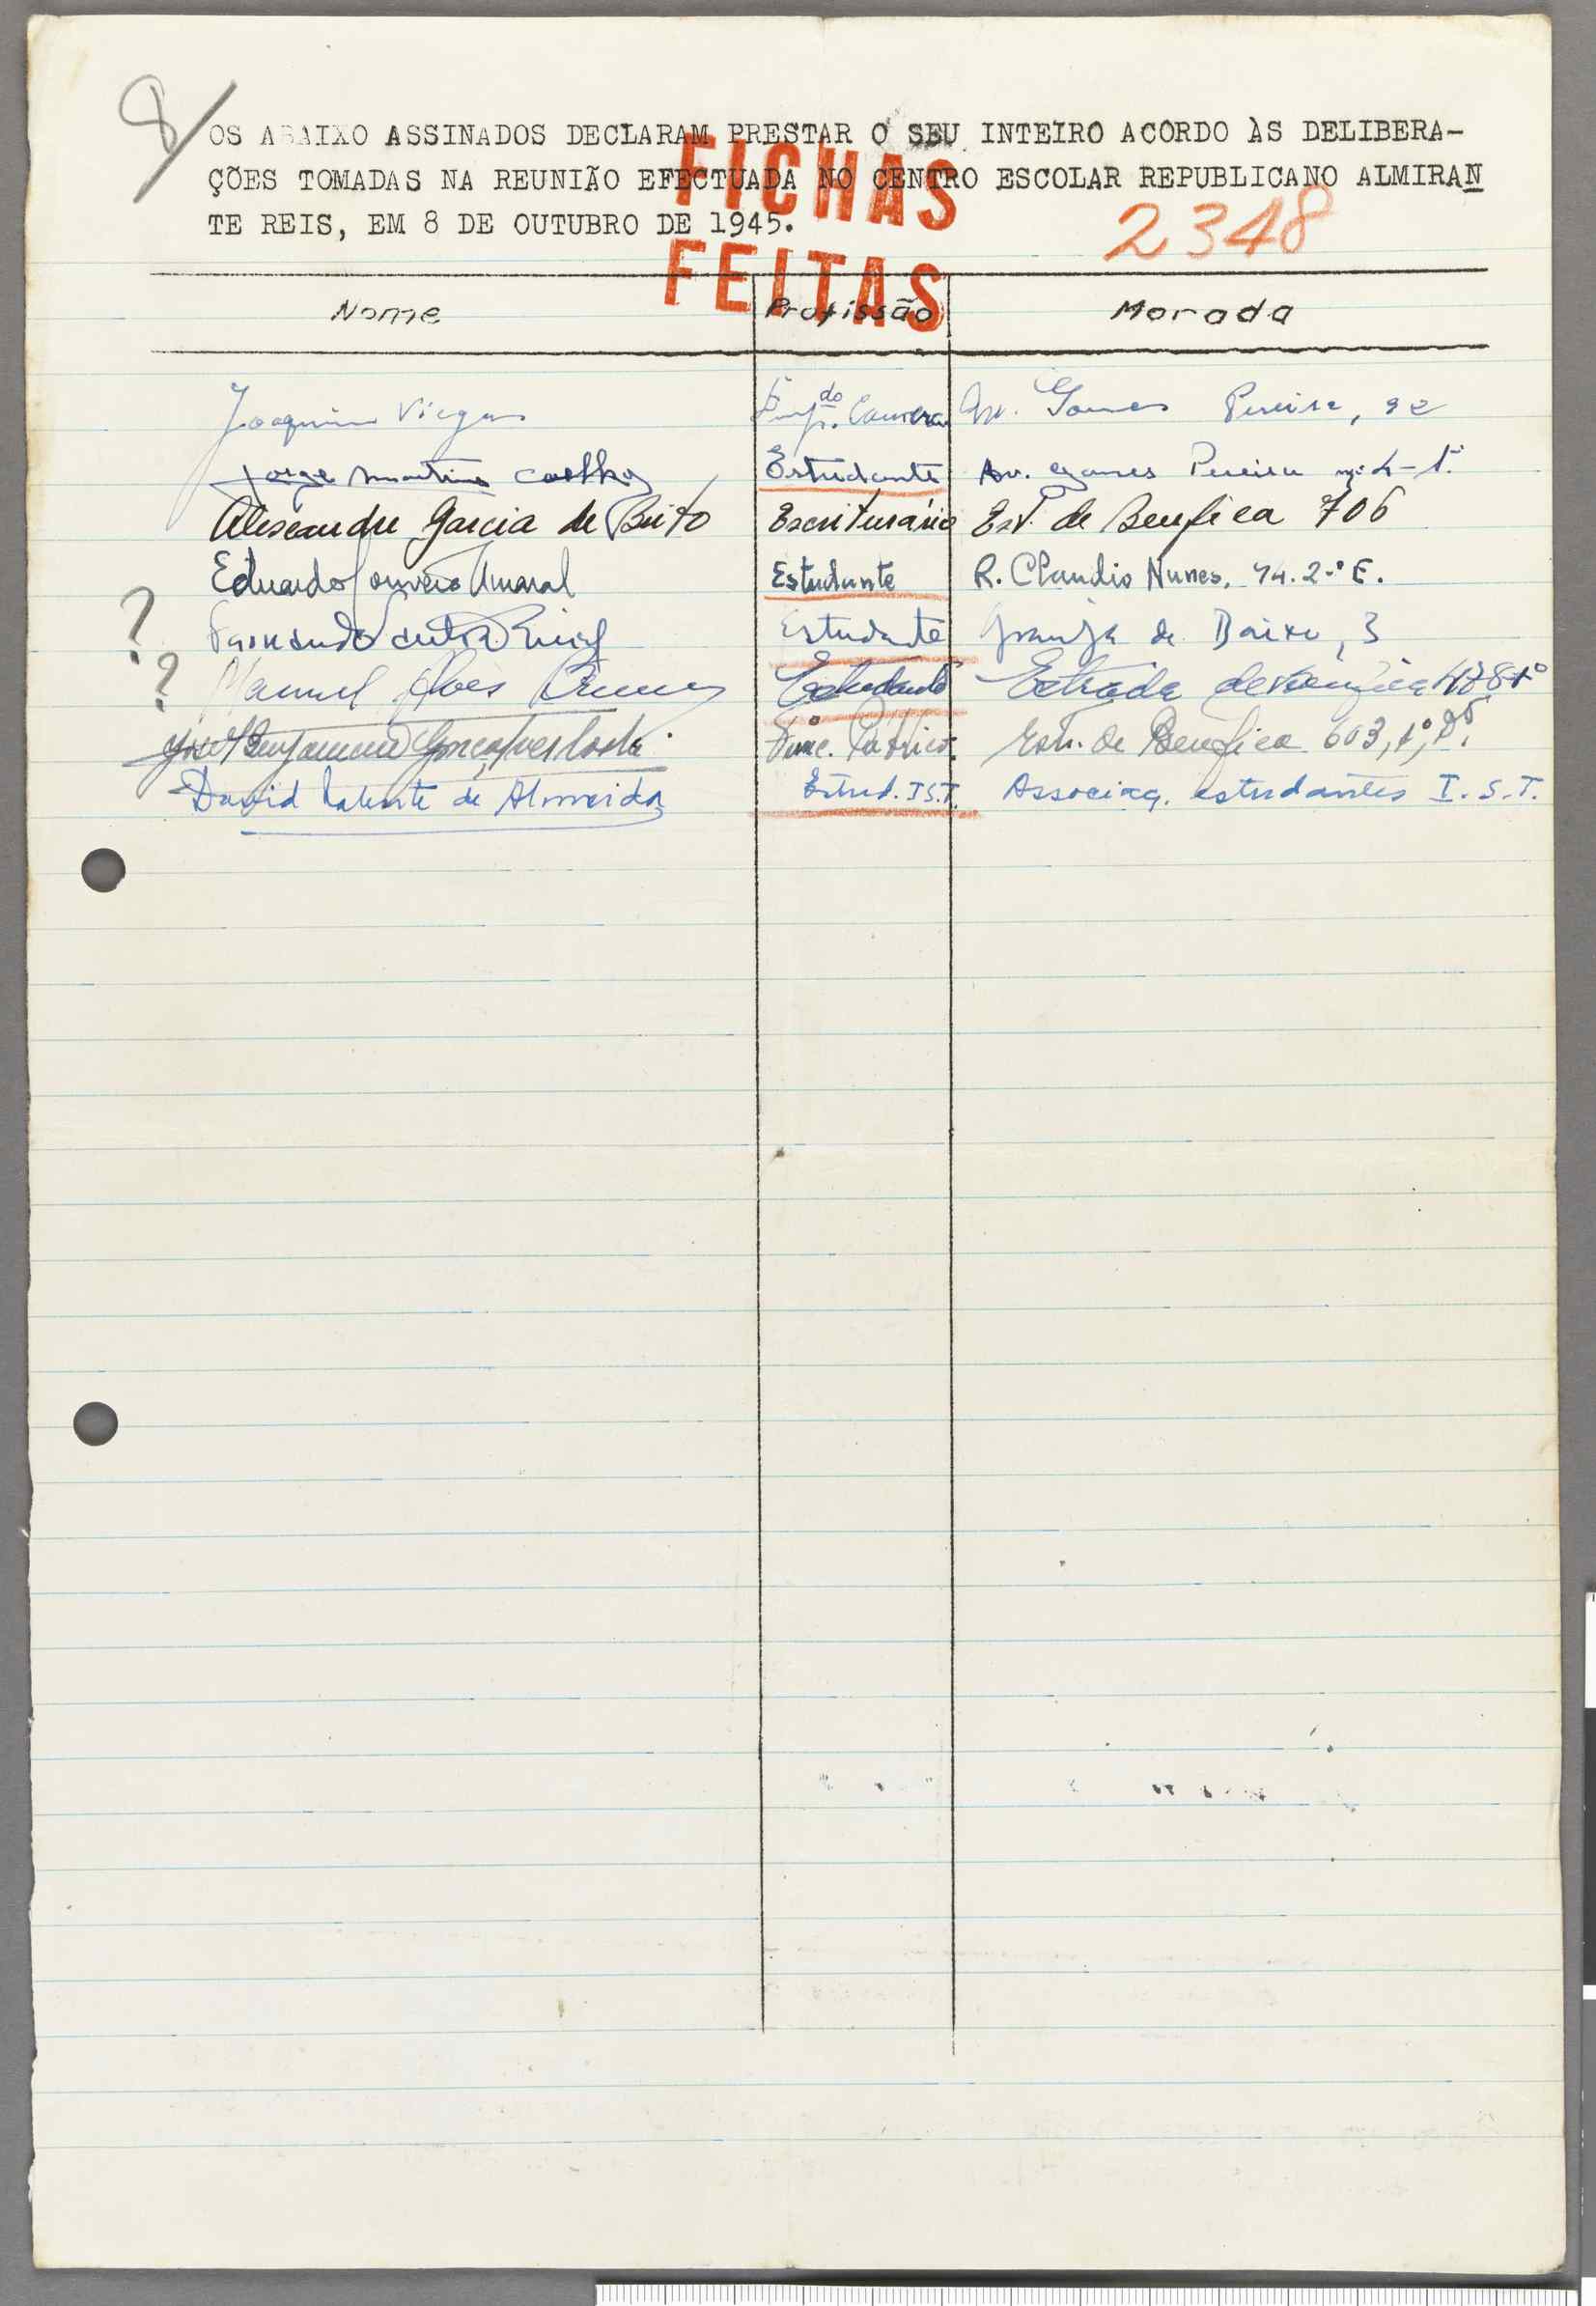 8/
OS ABAIXO ASSINADOS DECLARAM PRESTAR O SEU INTEIRO ACORDO ÀS DELIBERA-
ÇÕES TOMADAS NA REUNIÃO EFECTUADA NO CENTRO ESCOLAR REPUBLICANO ALMIRAN
TE REIS, EM 8 DE OUTUBRO DE 1945.
FICHAS
FEITAS
2348
Nome Profissão Morada
Joaquim Viegas Emp.do Av. Gomes Pereira, 92
Jorge Martins Coelho Estudante Av. Gomes Pereira
Alexandre Garcia de Brito Escriturário Est. de Benfica 706
Eduardo Amaral Estudante R. Claudio Nunes, 74. 2.º E.
? Fernando Estudante Granja de Baixo, 3
? Manuel Alves Estudante Estrada de Benfica
José Benjamim Gonçalves Costa Func. Estr. de Benfica 603, 1º, Dt.
David Valente de Almeida Estud. I.S.T. Associaç. estudantes I.S.T.